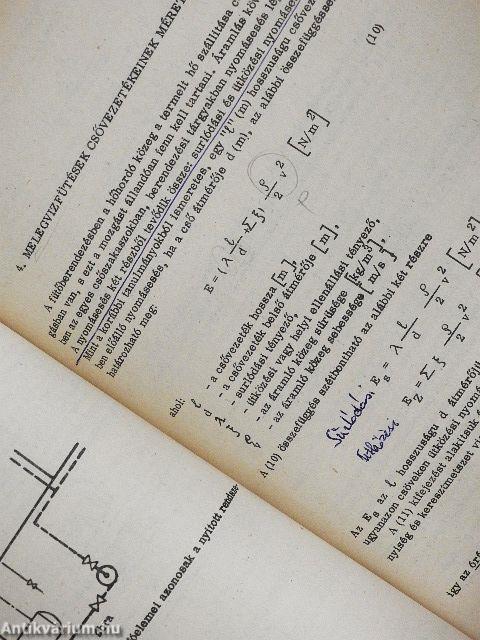 4. MELEGVIZFÜTÉSEK CSŐVEZETÉKEINEK MÉRET
A fütőberendezésben a hőhordó közeg a termelt hő szállítása
gásban van, s ezt a mozgást állandóan fenn kell tartani. Áramlás
ben az egyes csőszakaszokban, berendezési tárgyakban nyomásesés
A nyomásesés két részből tevődik össze: surlódási és ütközési nyomáse
Mint a korábbi tanulmányokból ismeretes, egy "ℓ" (m) hosszuságu csőveze
ben előálló nyomásesés, ha a cső átmérője d (m), az alábbi összefüggésse
határozható meg:
E = (λ ℓ/d + Σξ) ρ/2 v² [N/m²] (10)
ρ
ahol: ℓ - a csővezeték hossza [m],
d - a csővezeték belső átmérője [m],
λ - surlódási tényező,
ξ - ütközési vagy helyi ellenállási tényező,
ρ - az áramló közeg sürüsége [kg/m³],
- az áramló közeg sebessége [m/s].
A (10) összefüggés szétbontható az alábbi két részre
Súrlódási E_s = λ ℓ/d ρ/2 v² [N/m²]
Ütközési E_Z = Σξ ρ/2 v²
Az E_s az ℓ hosszuságu d átmérőjü
ugyanazon csöveken ütközési nyomá
A (11) kifejezést alakitsuk
nyiség és keresztmetszet
igy az
elemei azonosak a nyitott rendsz
Antikvarium.hu